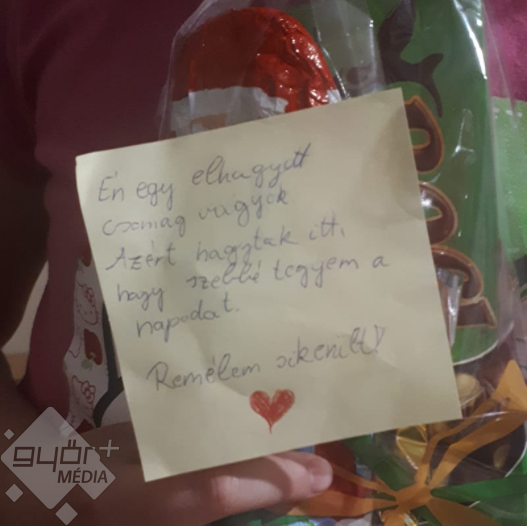 Én egy elhagyott
csomag vagyok
Azért hagytak itt,
hogy szebbé tegyem a
napodat.
Remélem sikerült!
győr+
MÉDIA